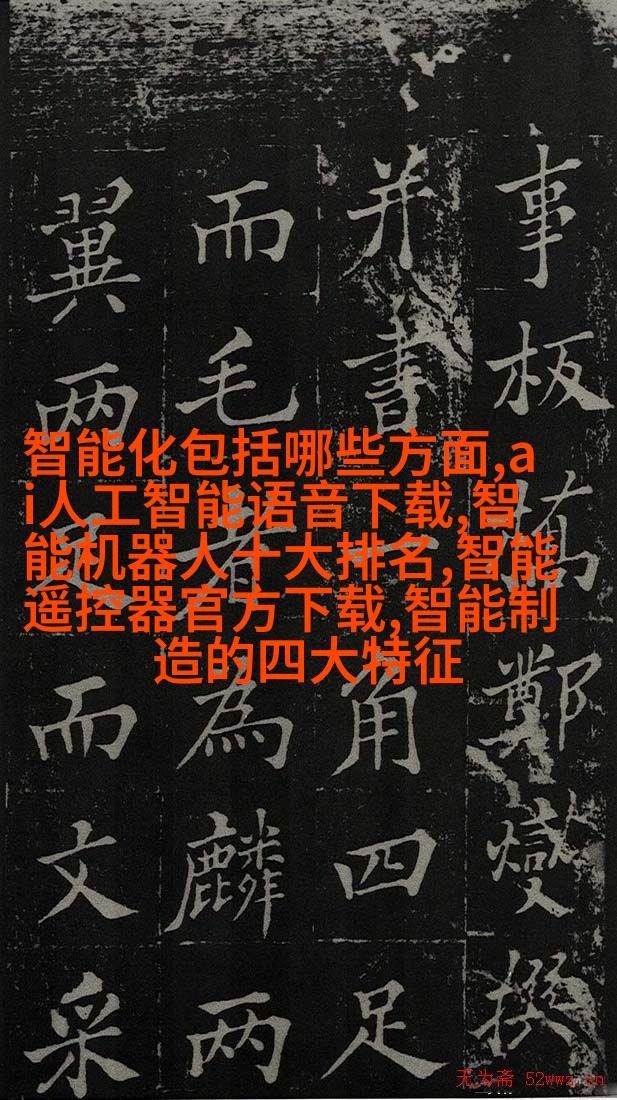 事板橋鄭燮撰
并書一角四足
而毛者為麟两
翼两足而文采
智能化包括哪些方面,a
i人工智能语音下载,智
能机器人十大排名,智能
遥控器官方下载,智能制
造的四大特征
无为斋 52wwz.cn